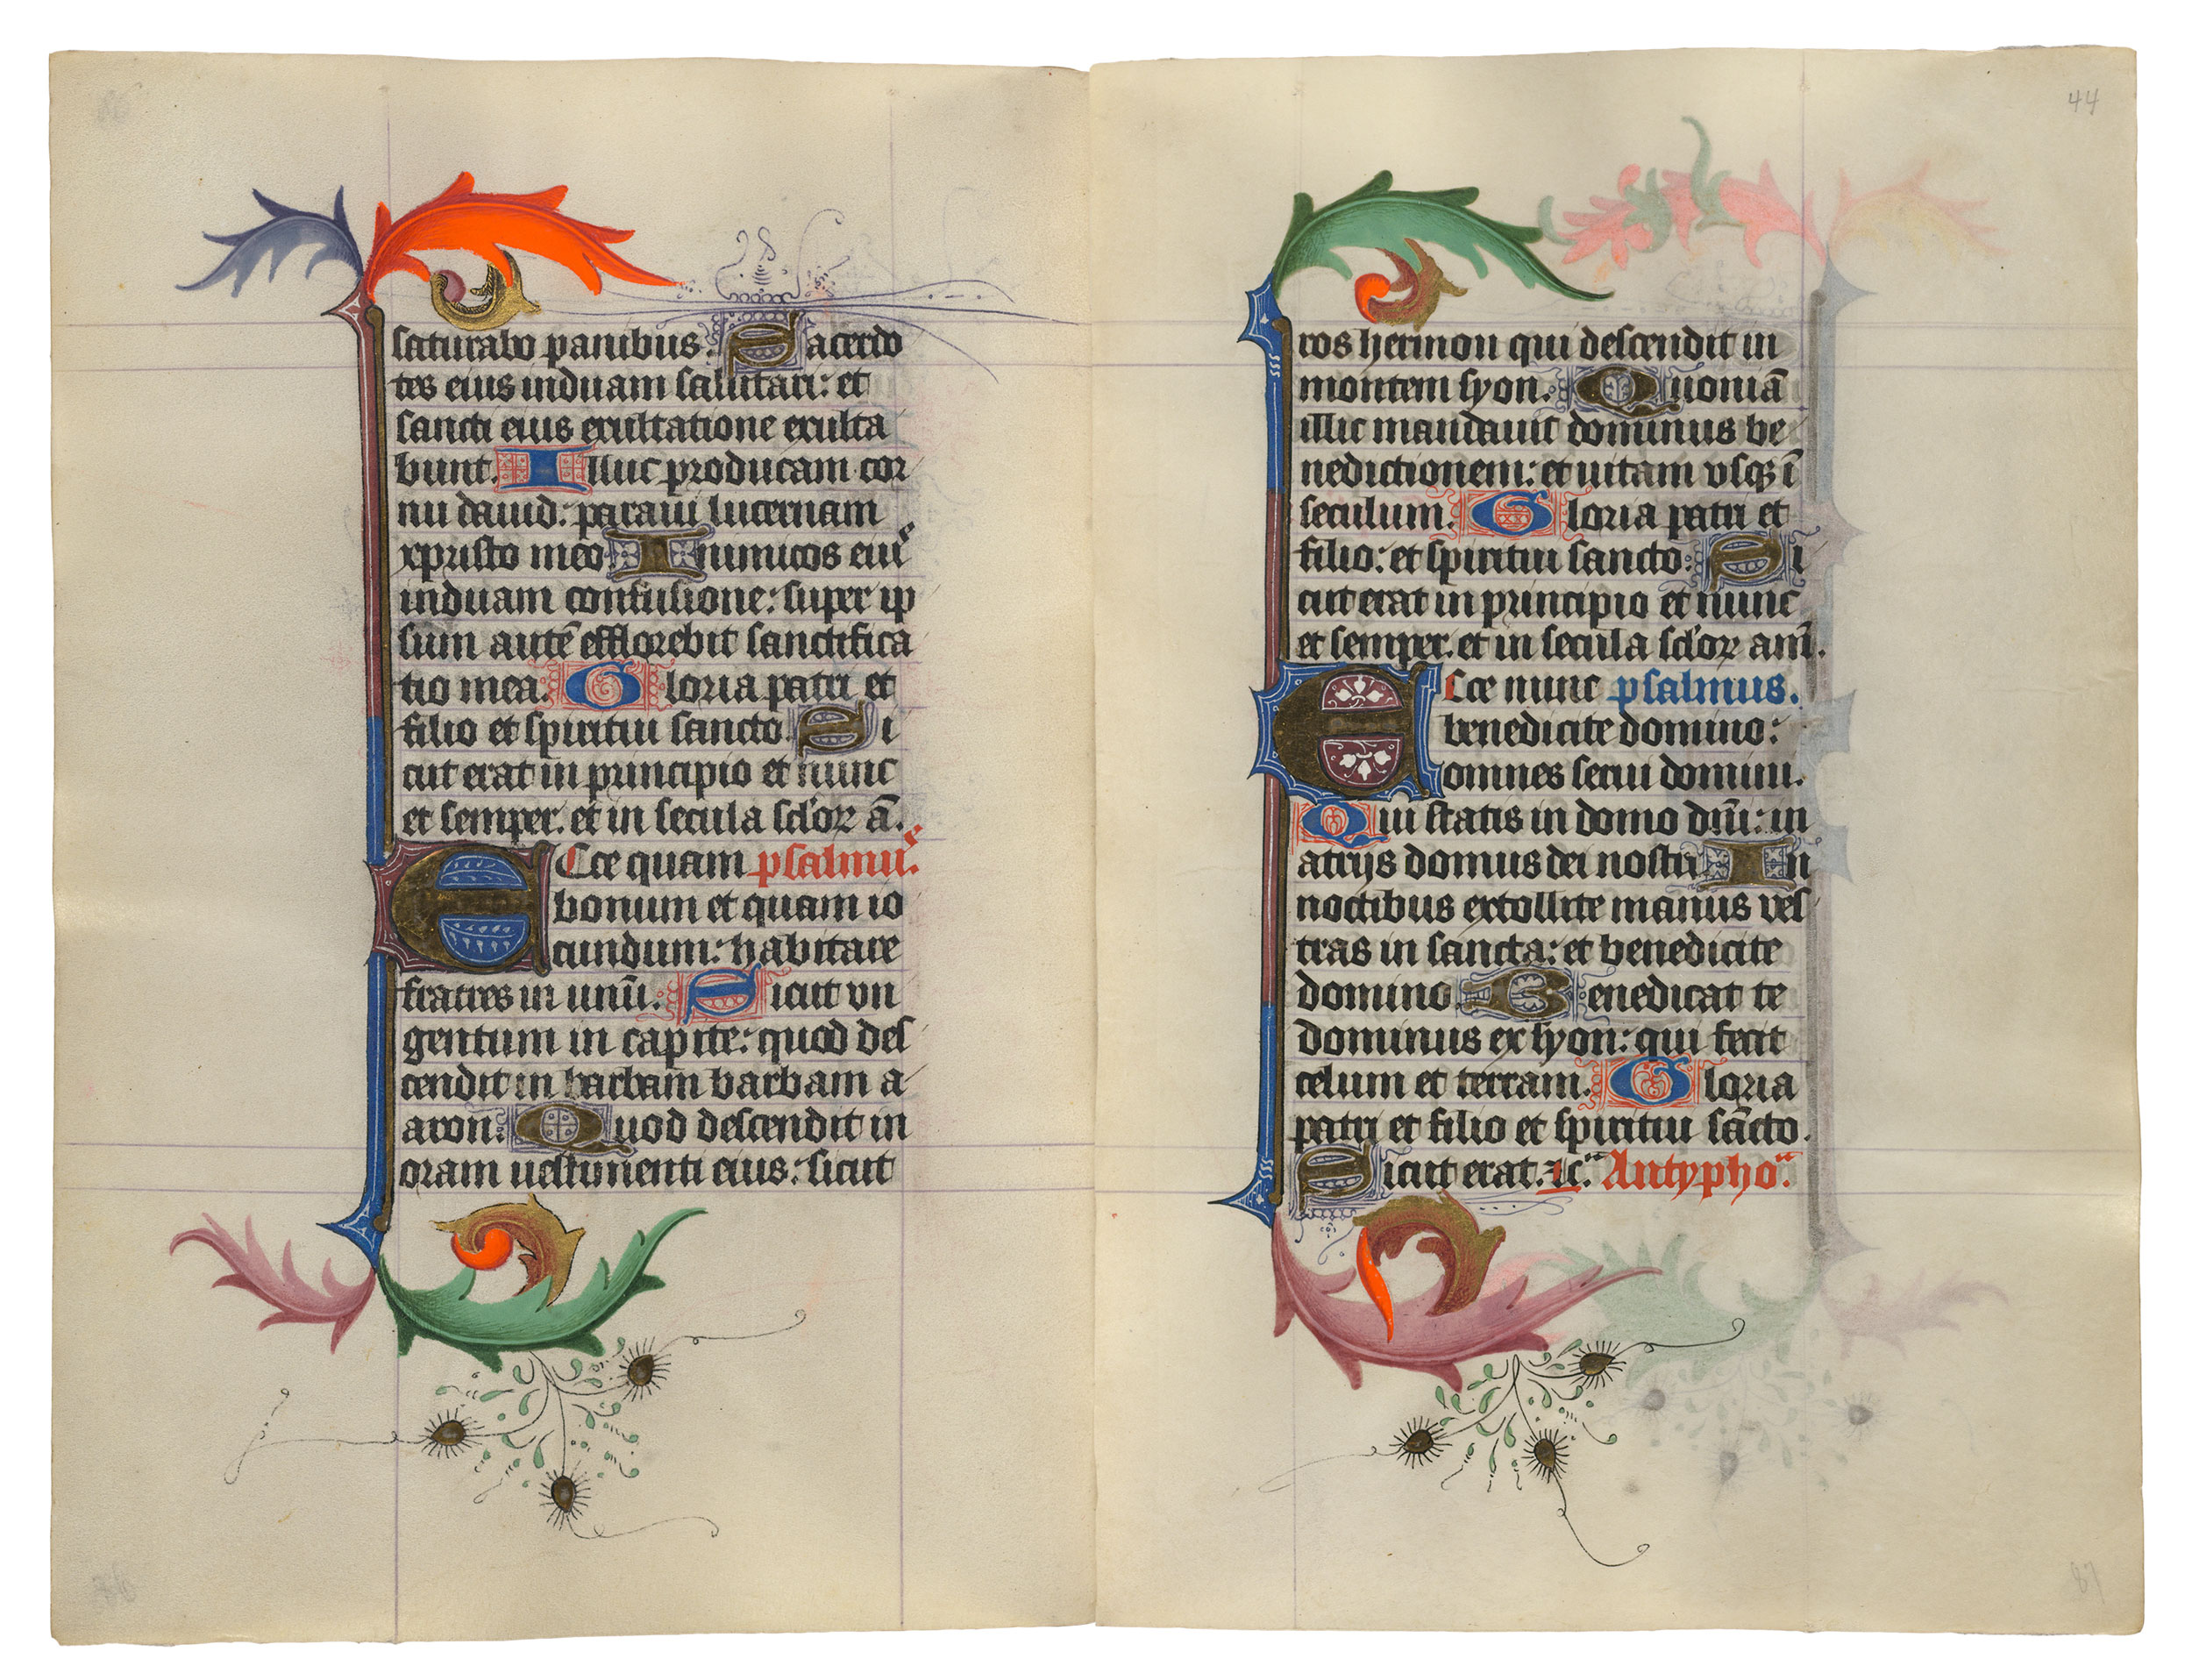 saturabo panibus. Sacerdo
tes eius induam salutari: et
sancti eius exultatione exulta
bunt. Illuc producam cor
nu dauid: paraui lucernam
xpristo meo Inimicos eiuˢ
induam confusione: super ip
sum autē efflorebit sanctifica
tio mea. Gloria patri et
filio et spiritui sancto. Si
cut erat in principio et nunc
et semper. et in secula sclorꝫ ā.
Ecce quam psalmuˢ.
bonum et quam io
cundum: habitare
fratres in unū. Sicut vn
gentum in capite: quod des
cendit in barbam barbam a
aron. Quod descendit in
oram uestimenti eius: sicut
44
ros hermon qui descendit in
montem syon. Quoniā
illic mandauit dominus be
nedictionem: et uitam vsqꝫ ī
seculum. Gloria patri et
filio: et spiritui sancto: Si
cut erat in principio et nunc
et semper. et in secula sclorꝫ am̄.
Ecce nunc psalmus.
benedicite domino:
omnes serui domini.
Qui statis in domo dn̄i: in
atrijs domus dei nostri In
noctibus extollite manus ves
tras in sancta: et benedicite
domino. Benedicat te
dominus ex syon: qui fecit
celum et terram. Gloria
patri et filio et spiritui sācto.
Sicut erat. ⁊c̄. Antypho.ᵃ
87